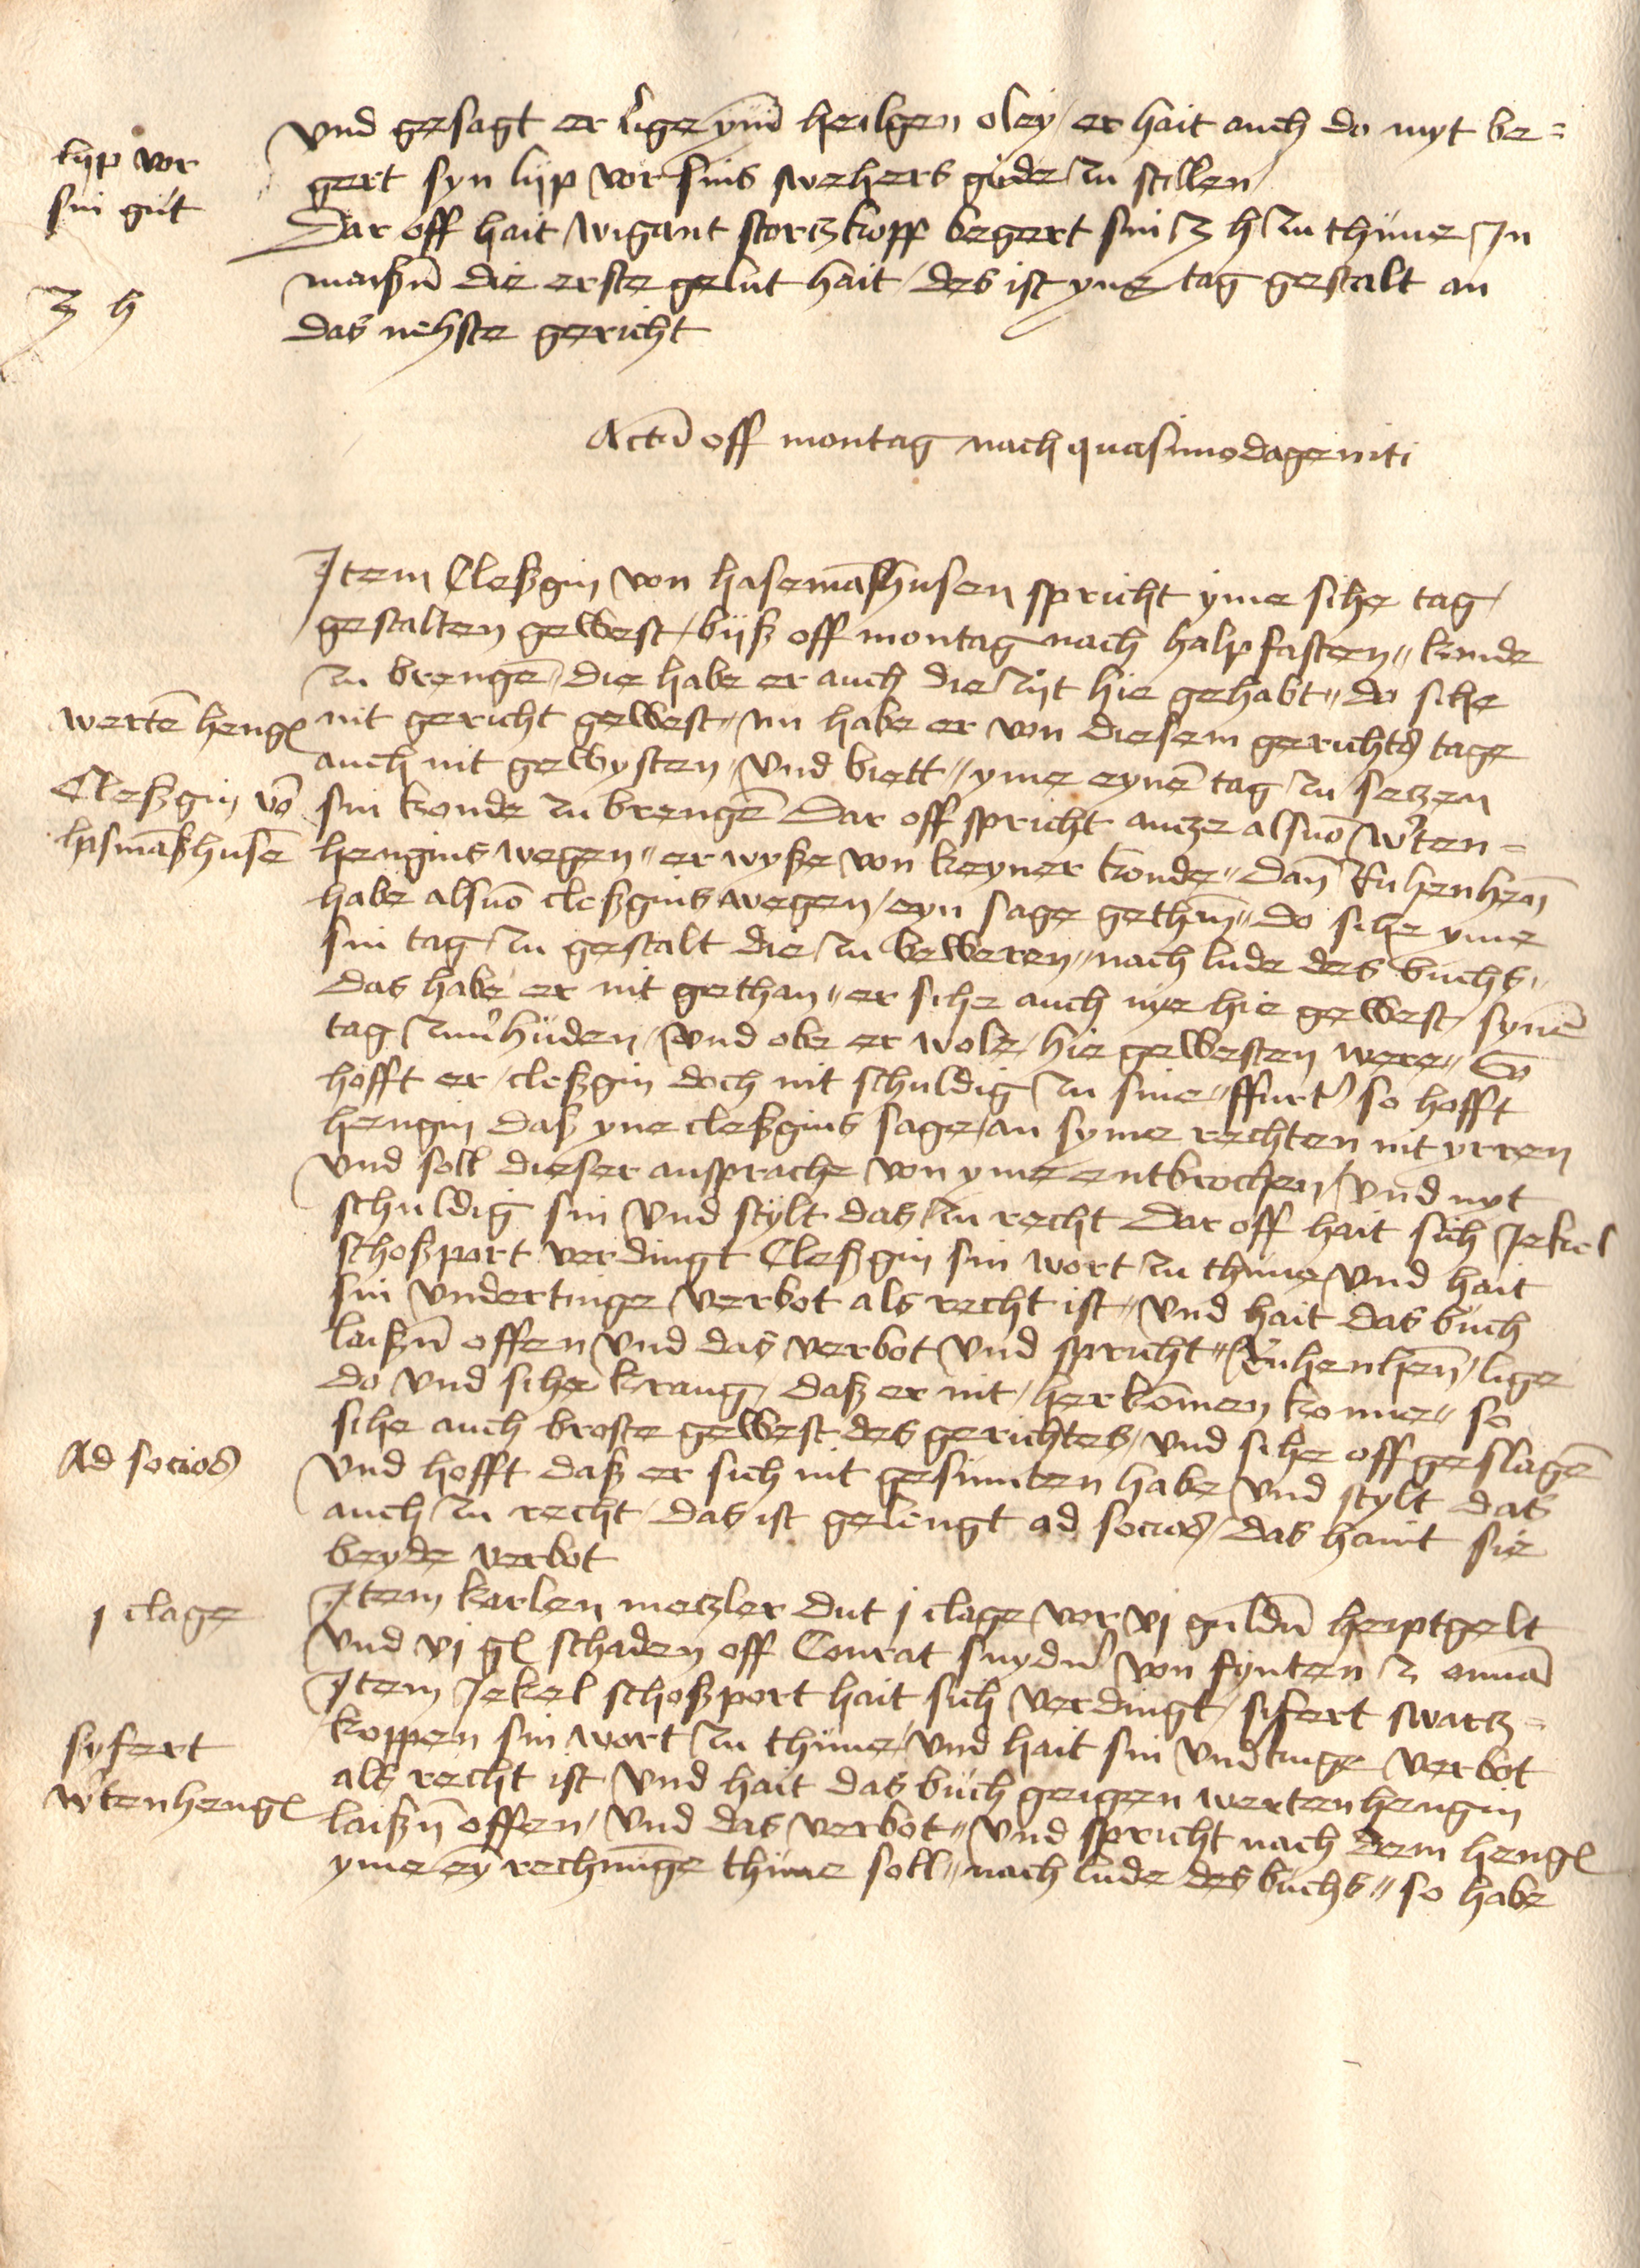 und gesagt er lige ym heilgen oley er hait auch do myt be-
lyp vor
gert syn lyp vor sins swehers gude zu stellen
sin gut
Dar off hait wigant stortzkopff begert sin 3 h zu thune In
maißn die erste gelut hait des ist yne tag gestalt an
3 h
das nehste gericht
Actu off montag nach quasimodogeniti
Item Cleßgin von hasemashusen spricht yme sihe tag
gestalten gewest biß off montag nach halpfasten konde
zu brenge die habe er auch die zyt hie gehabt do sihe
werte heng
nit gericht gewest nu habe er von diesem gerichts tage
auch nit gewysten und biett yme eyne tag zu setzen
Cleßgin vo
sin konde zu brenge Dar off spricht antze alsuo wten-
hasmaßhuse
hengins wegen er wyße von keyner konde dan Ruhenhen
habe alsuo cleßgins wegen eyn sage gethan do sihe yme
sin tag zu gestalt die zu beweren nach lude des buchs
das habe er nit gethan er sihe auch nye hie gewest syne
tag zuu huden und obe er wole hie gewesten were So
hofft er cleßgin doch nit schuldig zu sine ffurt so hofft
hengin daß yne cleßgins sage an syme rechten nit yrren
und soll dieser ansprache von yme entbrochen und nyt
schuldig sin und stylt das zu recht Dar off hait sich Jekel
schoßport verdingt Cleßgin sin wort zu thune und hait
sin undertinge verbot als recht ist und hait das buch
laißn offen und das verbot und spricht Ruhenhen lige
do und sihe krang daß er nit her komen konne so
sihe auch broste gewest des gerichtes und sihe off geslage
Ad socios
und hofft daß er sich nit gesumten habe und stylt das
auch zu recht das ist gelengt ad socios das haint sie
beyde verbot
j clage
Item karlen metzler dut j clage vor vj guldn heiptgelt
und vj gl schaden off Conrat snydn von fynten 2 omma
Item Jekel schoßport hait sich verdingt sifert swartz-
syfert
koppen sin wort zu thune und hait sin undtinge verbot
als recht ist und hait das buch geigen wertenhengin
wtenheng
laißn offen und das verbot und spricht nach dem heng
yme ey rechnuge thune soll nach lude des buchs so habe